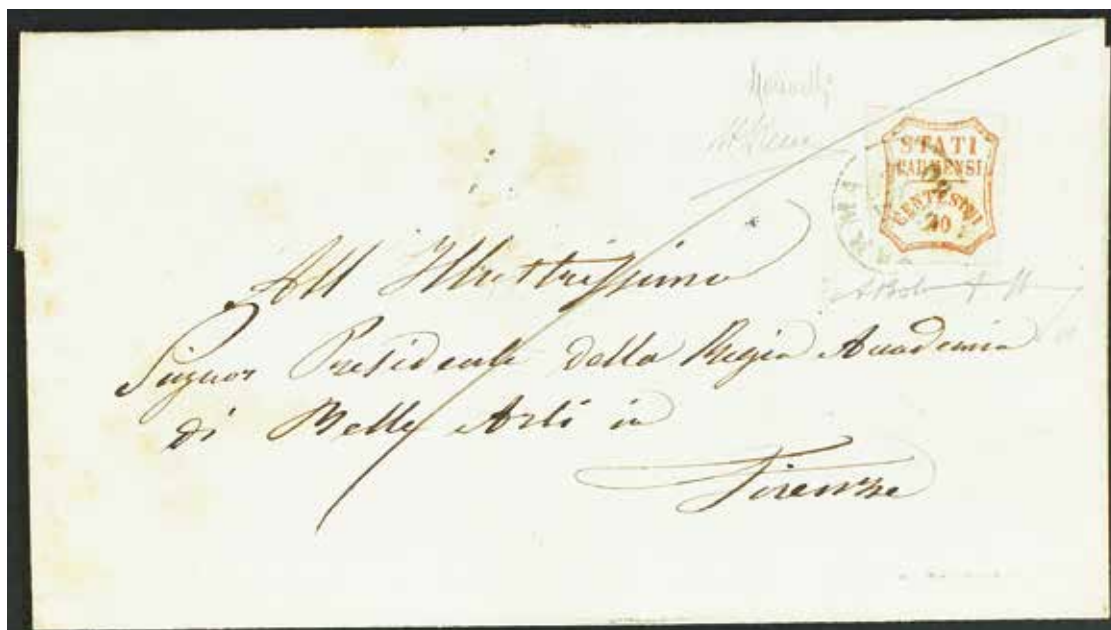 STATI
PARMENSI
CENTESIMI
40
PARMA
All Illustrissimo
Signor Presidente della Regia Accademia
di Belle Arti in
Firenze